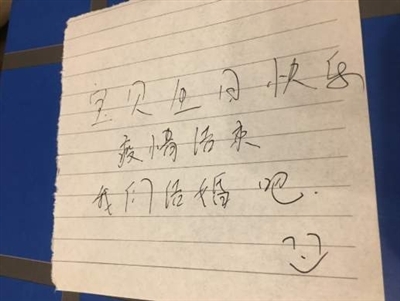 宝贝生日快乐
疫情结束
我们结婚吧.